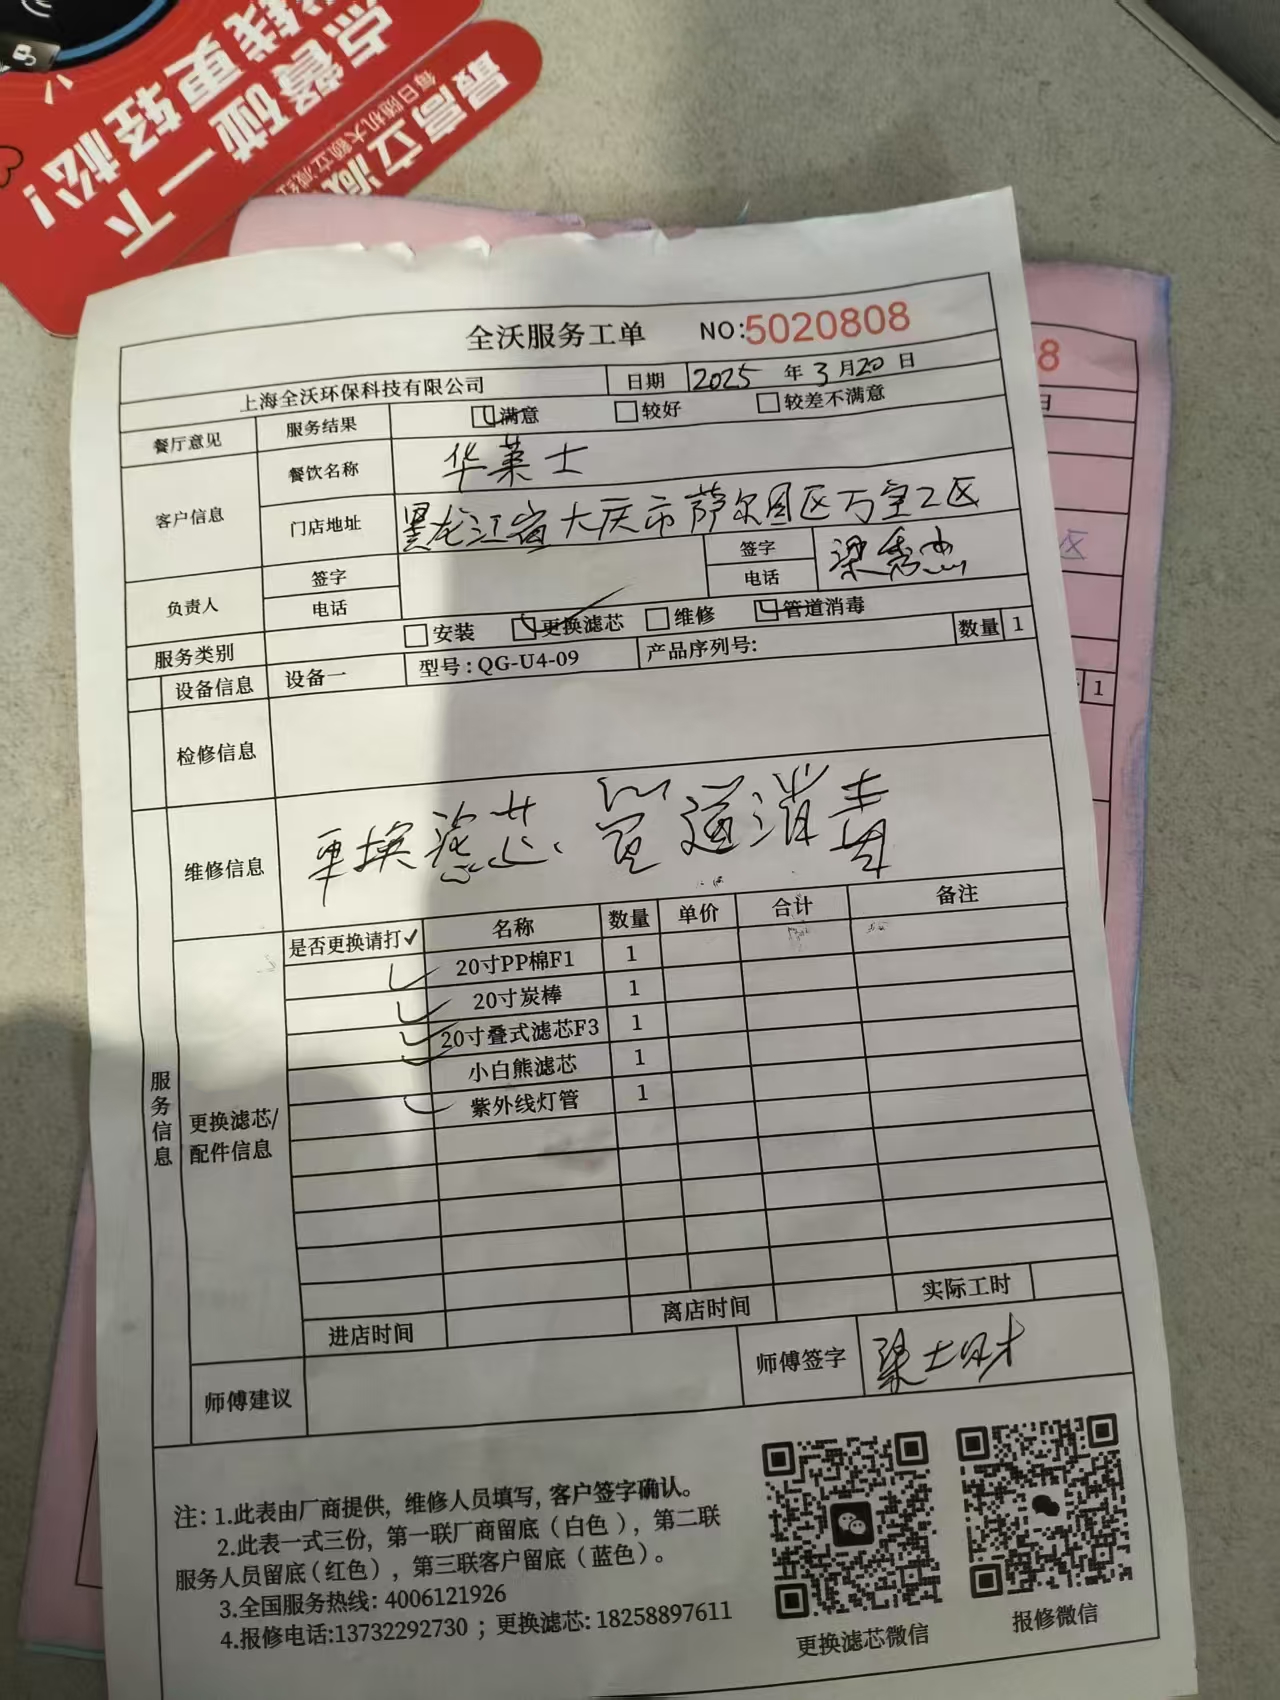 点餐碰一下
钱更轻松!
最高立减
每日随机大额立减
全沃服务工单 NO:5020808
上海全沃环保科技有限公司 日期 2025 年 3 月 20 日
餐厅意见 服务结果 满意 较好 较差不满意
客户信息 餐饮名称 华莱士
门店地址 黑龙江省大庆市萨尔图区万宝2区
负责人 签字 签字
电话 电话
服务类别 安装 更换滤芯 维修 管道消毒
设备信息 设备一 型号:QG-U4-09 产品序列号: 数量 1
检修信息
维修信息 更换滤芯、管道消毒
服务信息
更换滤芯/
配件信息
是否更换请打✓ 名称 数量 单价 合计 备注
✓ 20寸PP棉F1 1
✓ 20寸炭棒 1
✓ 20寸叠式滤芯F3 1
✓ 小白熊滤芯 1
✓ 紫外线灯管 1
进店时间 离店时间 实际工时
师傅建议 师傅签字
注: 1.此表由厂商提供, 维修人员填写, 客户签字确认。
2.此表一式三份, 第一联厂商留底 (白色), 第二联
服务人员留底 (红色), 第三联客户留底 (蓝色)。
3.全国服务热线: 4006121926
4.报修电话:13732292730 ; 更换滤芯: 18258897611
更换滤芯微信 报修微信
8
日
区
1